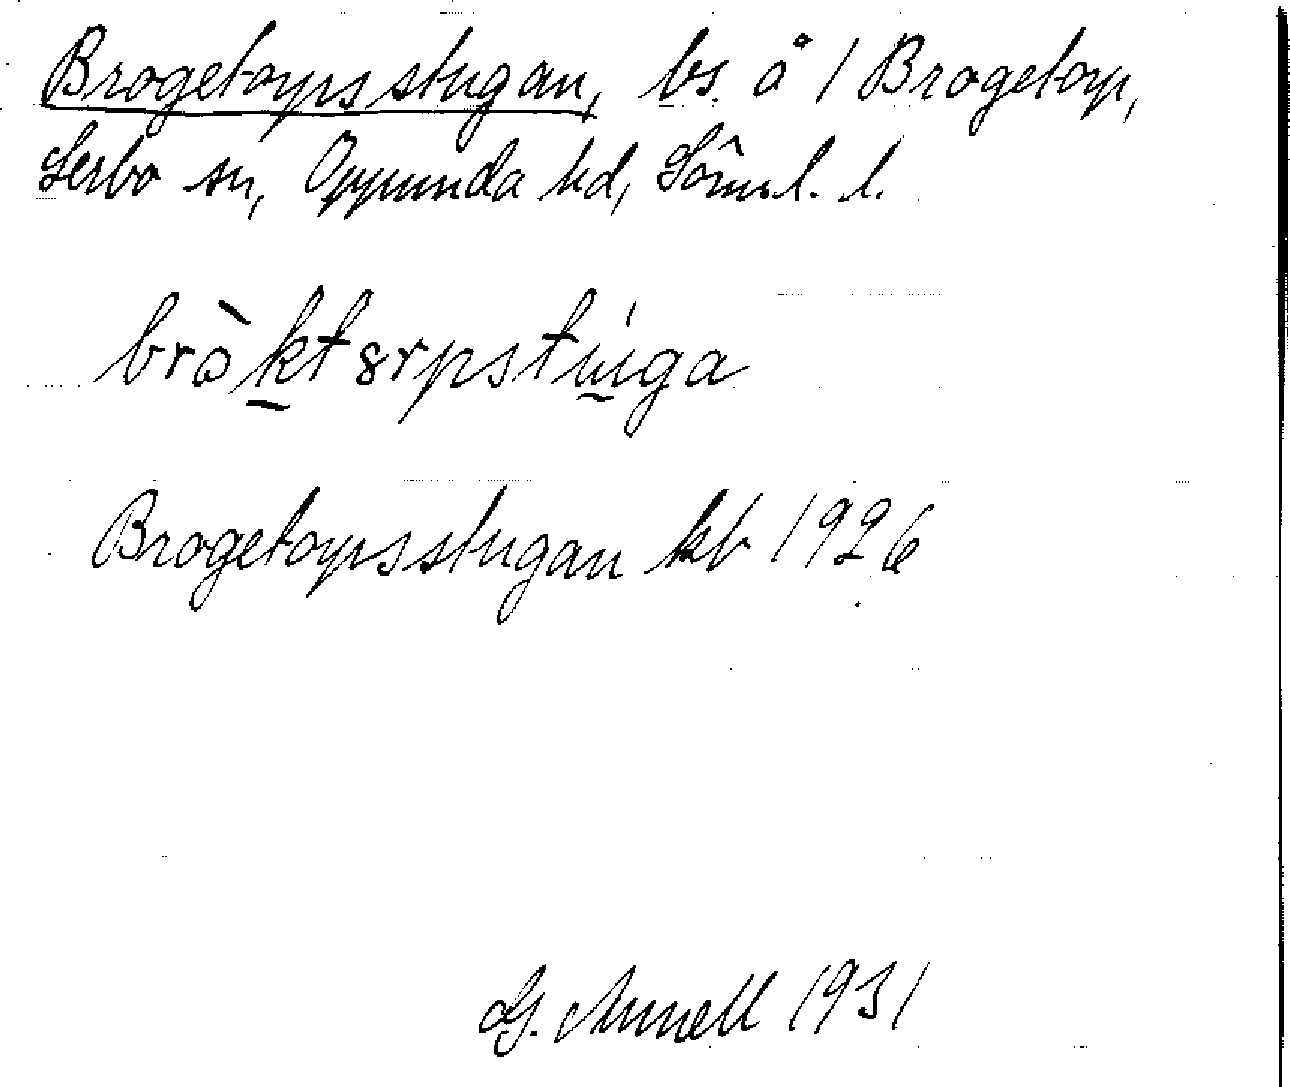 Brogetorpsstugan, bs å / Brogetorp,
Lerbo sn, Oppunda hd, Sörml. l.
bròktɞrpstúga
Brogetorpsstugan kb 1926
G. Annell 1931